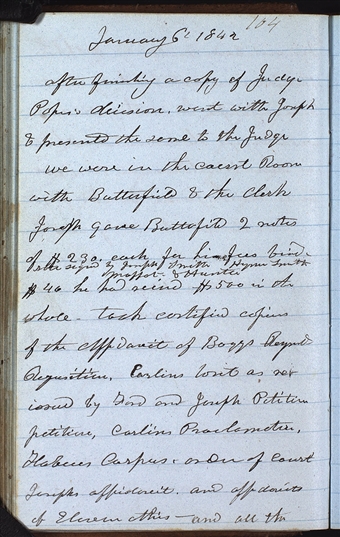 104
January 6th 1842
after finishing a copy of Judge
Popes decision. went with Joseph
& presented the same to the Judge
we were in the court Room
with Butterfield & the Clerk
Joseph gave Butterfield 2 notes
of $230, each for his fees besides
notes signed by Joseph Smith Hyrum Smith
Moffat & Hunter
$40 he had recived $500 in the
whole. took certified copies
of the affidavit of Boggs
Requisition, Carlins writ as
issued by Ford and Joseph Petition
petition, Carlins Proclamation,
Habeus Corpus. order of court
Josephs affidavit. and affidavits
of others— and all the